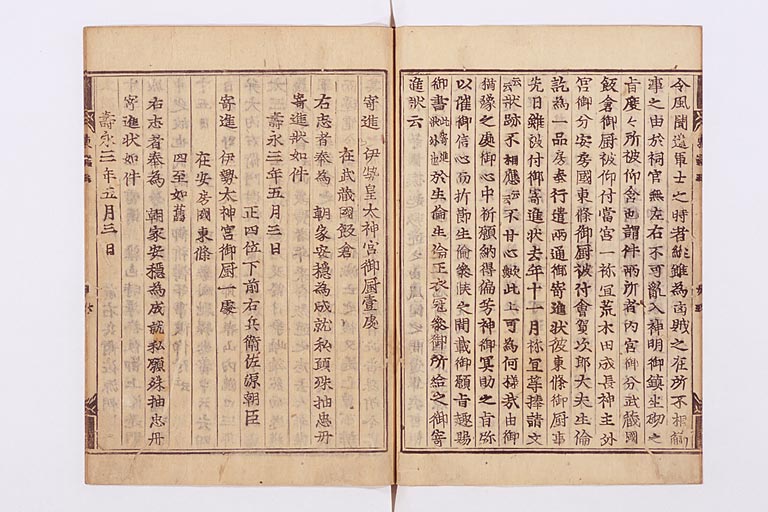 令風聞遣軍士之時者縦雖為凶賊之在所不相觸
事之由於祠官無左右不可亂入神明御鎮坐砌之
旨度々所被仰含也謂件兩所者内宮御分武藏國
飯倉御厨被仰付當宮一祢宜荒木田成長神主外
宮御分安房國東條御厨被付會賀次郎大夫生倫
訖為一品房奉行遣兩通御寄進狀被東條御厨事
先日雖被付御寄進狀去年十一月祢宜等捧請文
云狀跡不相應云不甘心歟此上可為何樣哉由御
猶豫之處御心中祈願納得偏芳神御冥助之旨弥
以催御信心而折節生倫參候之間載御願旨趣賜
御書此寄進狀等也於生倫生倫正衣冠參御所給之御寄
進狀云
寄進 伊勢皇太神宮御厨壹處
在武藏國飯倉
右志者奉為 朝家安穩為成就私願殊抽忠丹
寄進狀如件
壽永三年五月三日
正四位下前右兵衛佐源朝臣
寄進 伊勢太神宮御厨一處
在安房國東條
四至如舊
右志者奉為 朝家安穩為成就私願殊抽忠丹
寄進狀如件
壽永三年五月三日